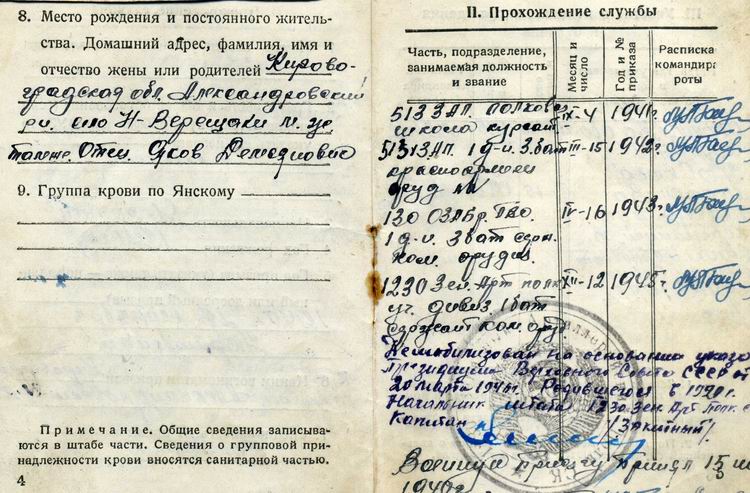 8. Место рождения и постоянного житель-
ства. Домашний адрес, фамилия, имя и
отчество жены или родителей Кирово-
градская обл. Александровский
село Н-Верещаки
Отец Яков Демедович
9. Группа крови по Янскому
Примечание. Общие сведения записыва-
ются в штабе части. Сведения о групповой при-
надлежности крови вносятся санитарной частью.
4
II. Прохождение службы
Часть, подразделение,
занимаемая должность
и звание
Месяц и
число
Год и №
приказа
Расписка
командира
роты
513 ЗАП. полковая IX-4 1941г.
школа курсант
513 ЗАП. 1 д-н. 3 бат III-15 1942г.
красноармеец
оруд
130 ОЗАБр. ПВО. IV-16 1943г.
1 д-н. 3 бат
ком. орудия.
1230 Зен. Арт полк XII-12 1945г.
уч. дивиз 1 бат
сержант ком
Демобилизован на основании указа
Президиума Верховного Совета СССР от
20 марта 1946г. Родившегося в
Начальник штаба 1230 Зен. Арт Полк
Капитан
Военную присягу принял 15